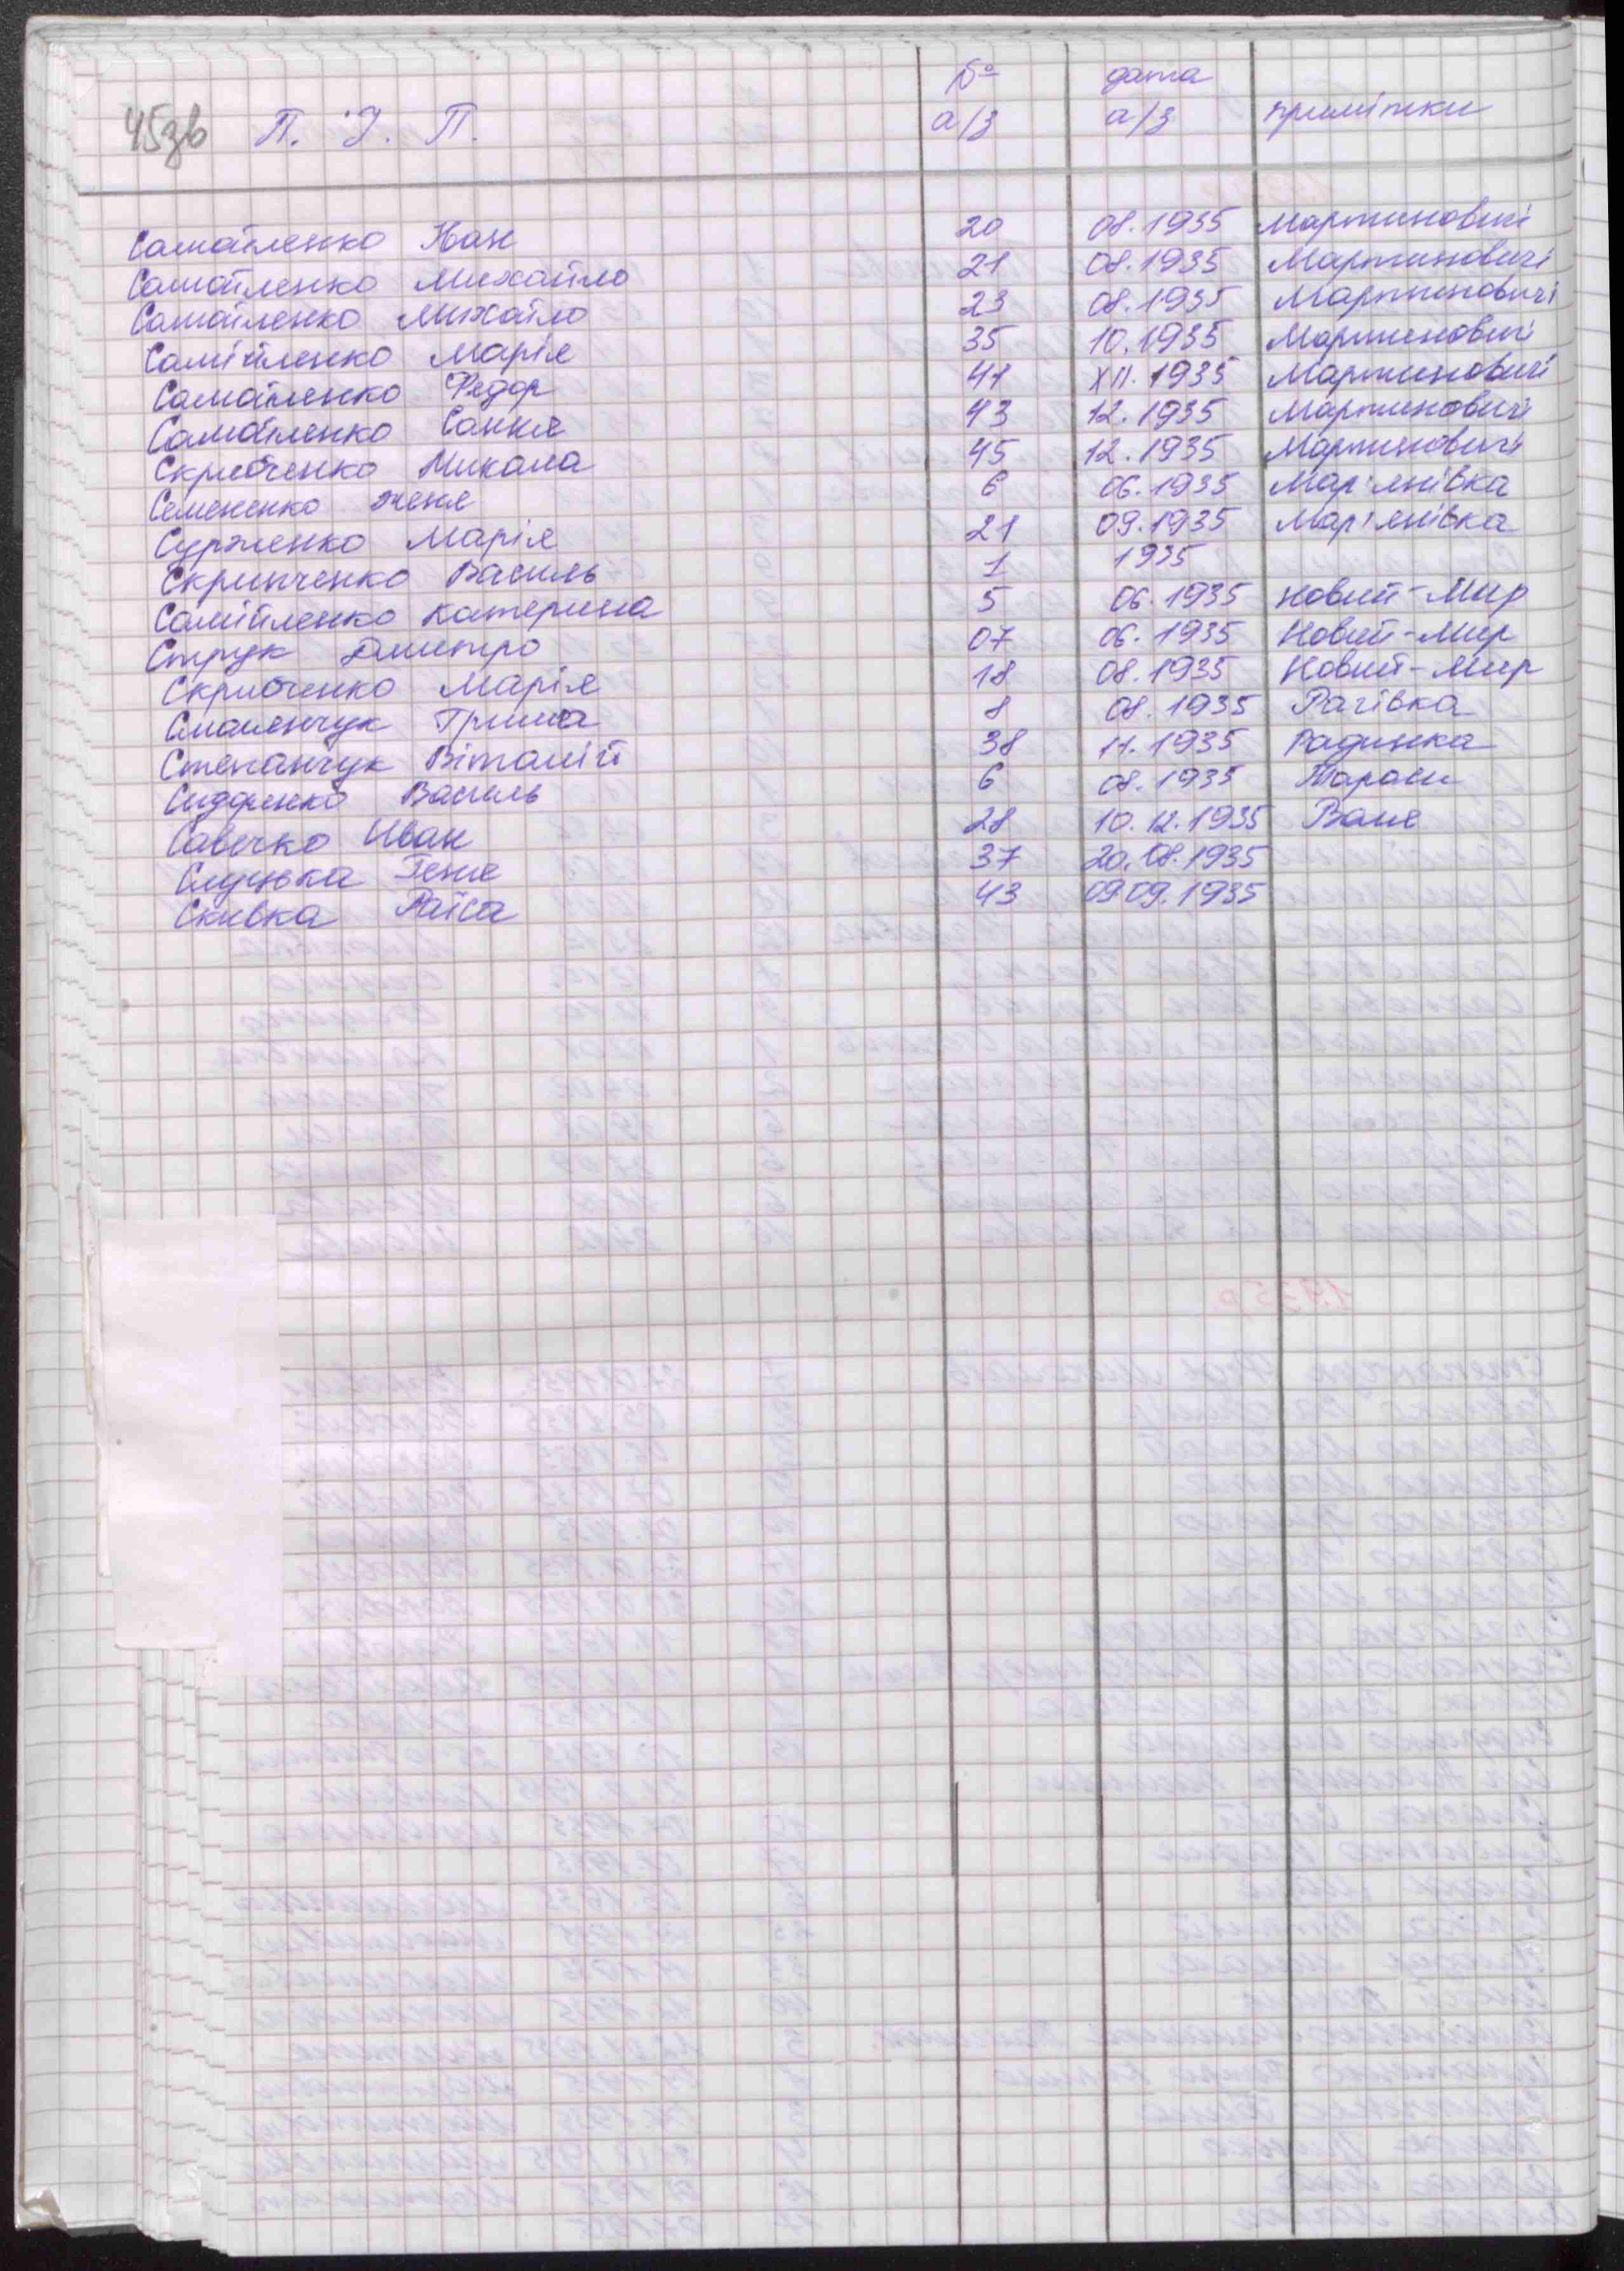 № дата
45зв П. І. П. а/з а/з примітки
Самойленко Іван 20 08.1935 Мартиновичі
Самойленко Михайло 21 08.1935 Мартиновичі
Самойленко Михайло 23 08.1935 Мартиновичі
Самійленко Марія 35 10.1935 Мартиновичі
Самойленко Федор 41 XII.1935 Мартиновичі
Самойленко Соння 43 12.1935 Мартиновичі
Скрибченко Микола 45 12.1935 Мартиновичі
Семененко Женя 6 06.1935 Мар'янівка
Сурженко Марія 21 09.1935 Мар'янівка
Скрипченко Василь 1 1935
Самійленко Катерина 5 06.1935 Новий-Мир
Струк Дмитро 07 06.1935 Новий-Мир
Скрибченко Марія 18 08.1935 Новий-Мир
Гриша 8 08.1935 Рагівка
Степанчук Віталій 38 11.1935 Радинка
Сидоренко Василь 6 08.1935
Савечко Иван 28 10.12.1935
Слуцька Геня 37 20.08.1935
Скивка Раїса 43 09.09.1935